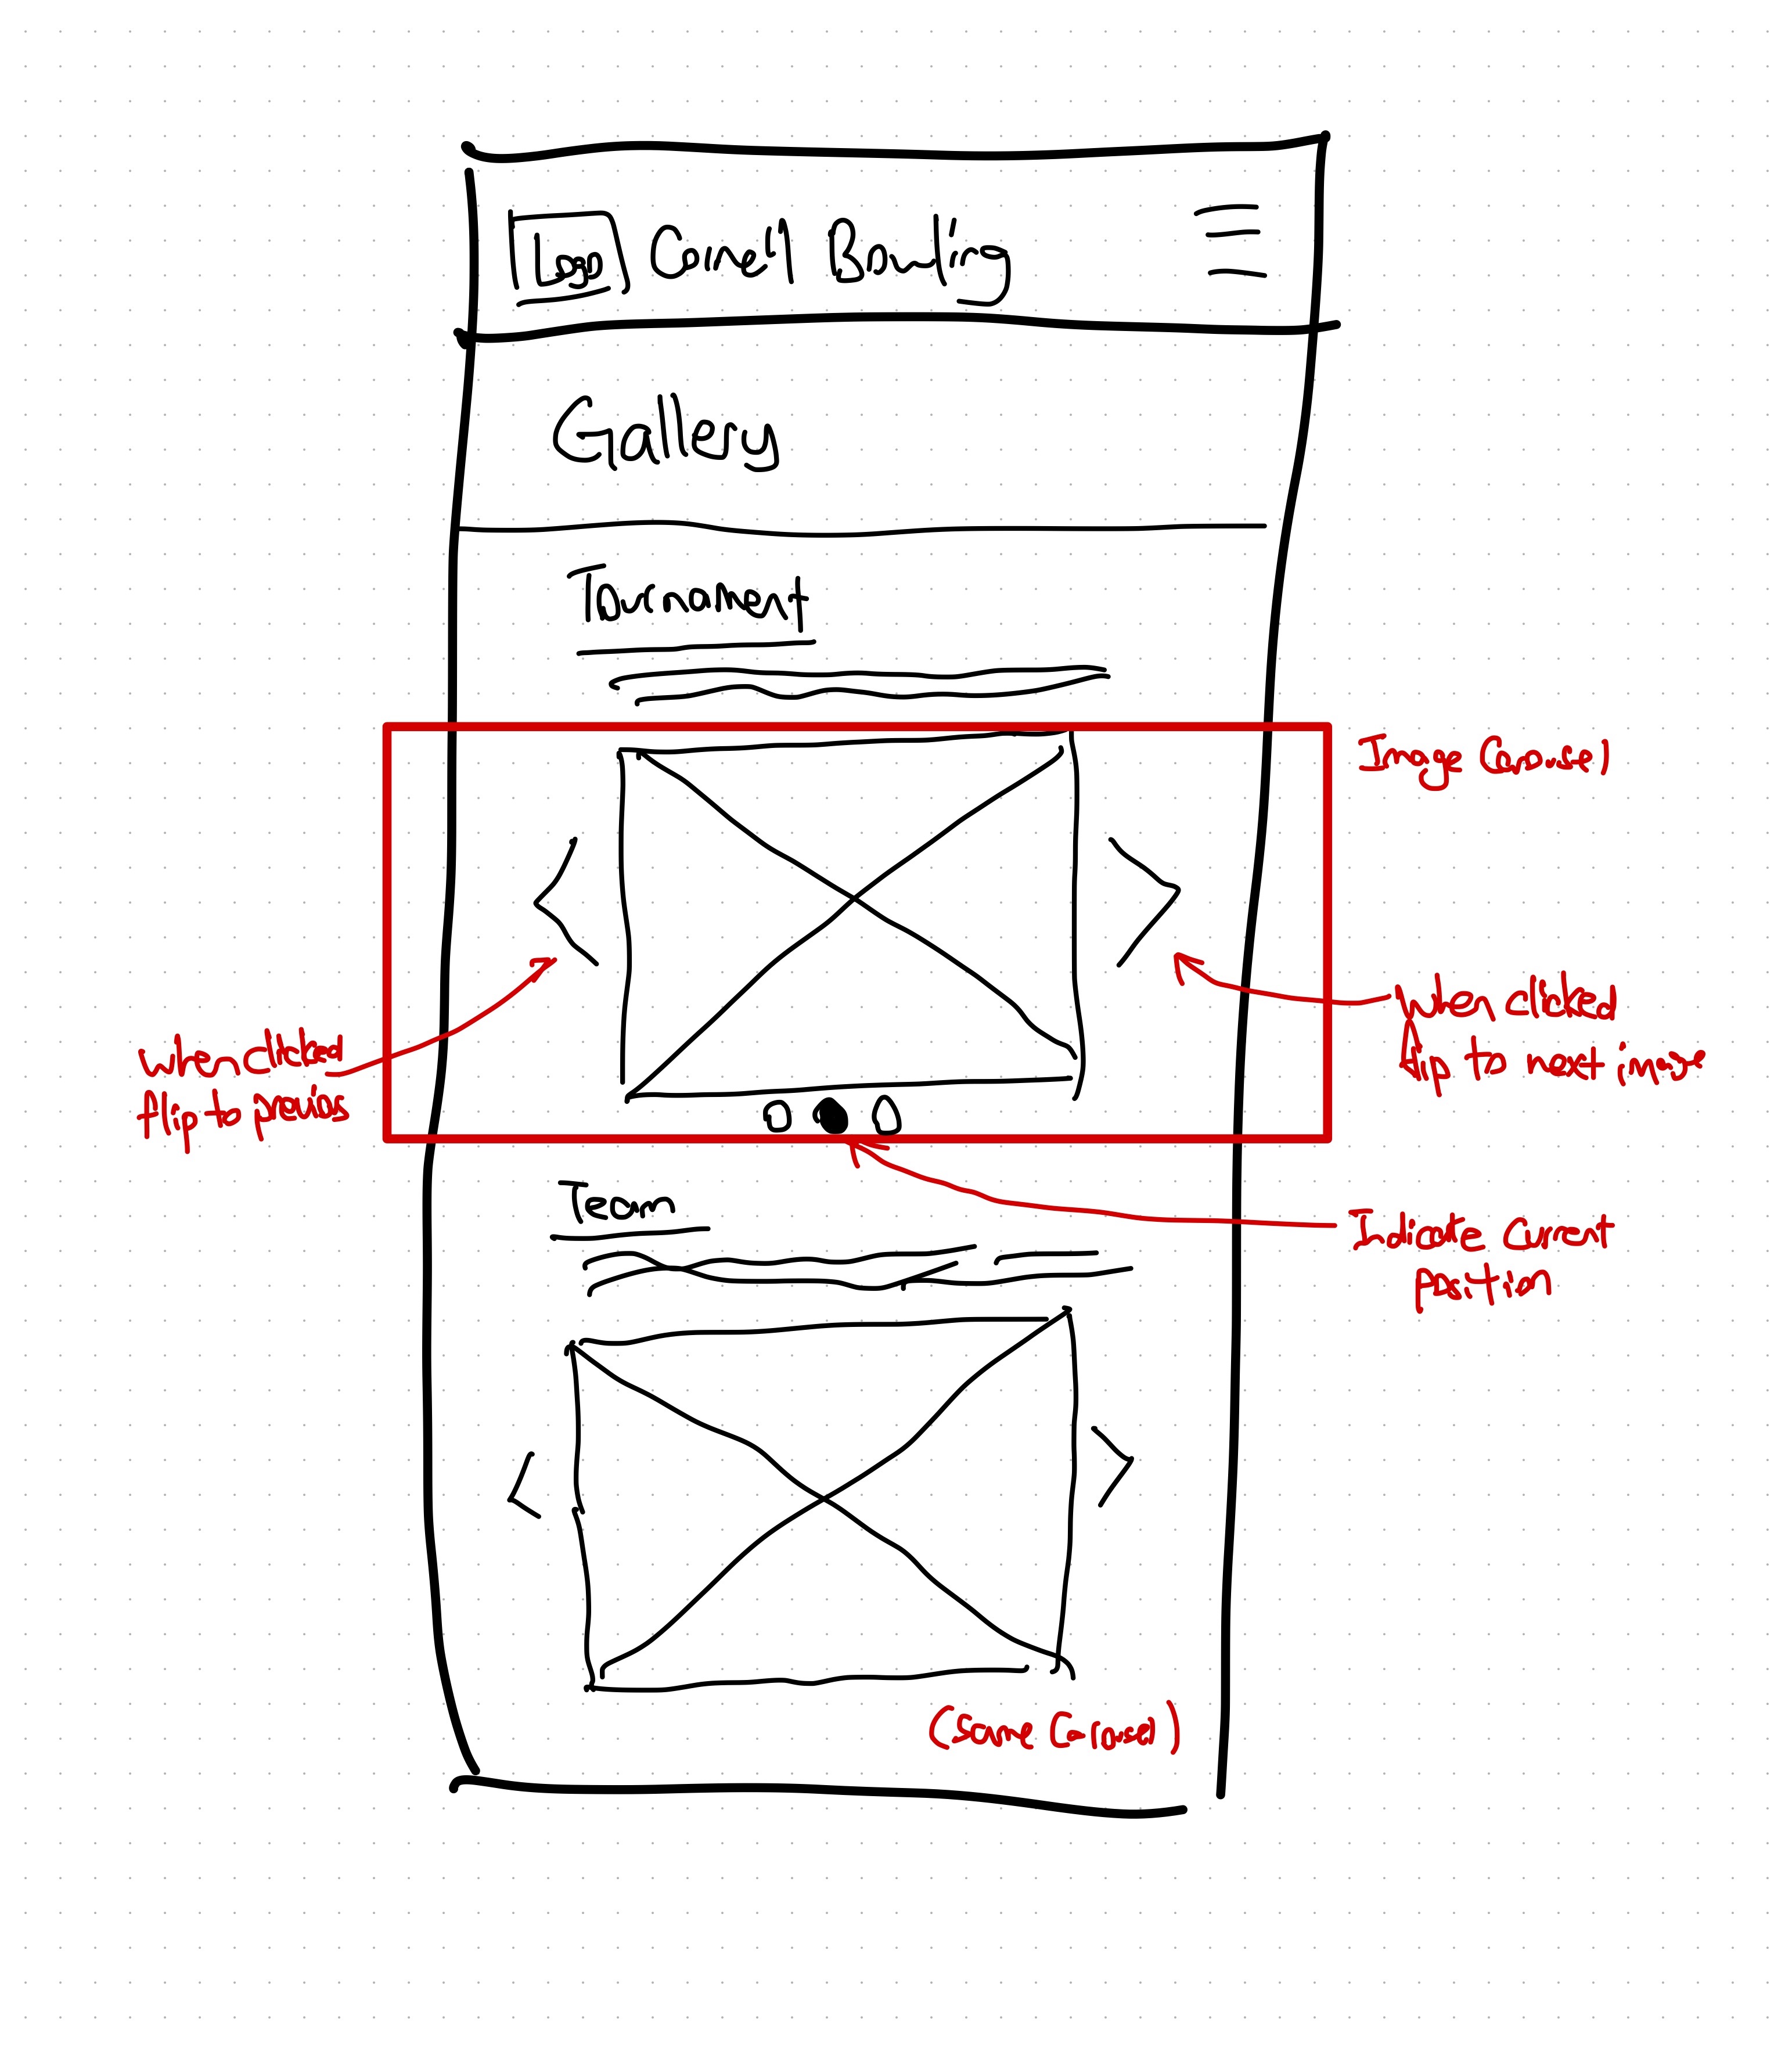 Logo Cornell Bowling
Gallery
Tournament
Image Carousel
When clicked
flip to previos
When clicked
flip to next image
Indicate current
position
Team
(Same Carousel)